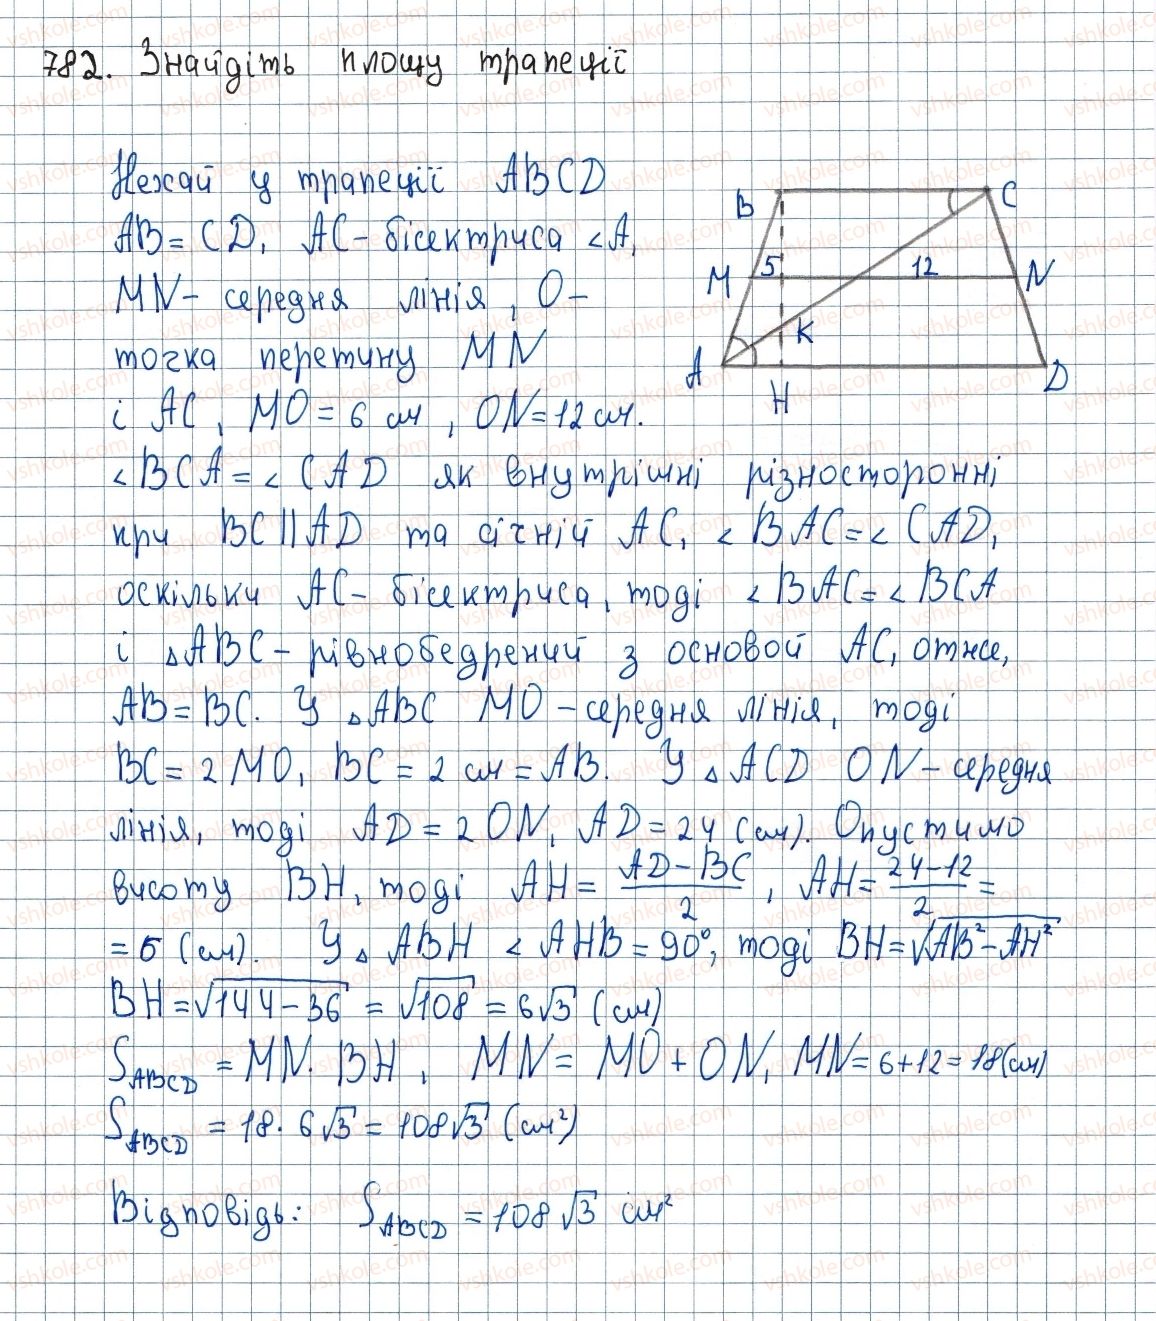 782. Знайдіть площу трапеції
Нехай у трапеції ABCD
AB = CD, AC - бісектриса <A,
MN - середня лінія, O -
точка перетину MN
і AC, MO = 6 см, ON = 12 см.
B
C
M
5
12
N
K
A
H
D
<BCA = <CAD як внутрішні різносторонні
при BC || AD та січній AC, <BAC = <CAD,
оскільки AC - бісектриса, тоді <BAC = <BCA
і △ABC - рівнобедрений з основой AC, отже,
AB = BC. У △ABC MO - середня лінія, тоді
BC = 2MO, BC = 2 см = AB. У △ACD ON - середня
лінія, тоді AD = 2ON, AD = 24 (см). Опустимо
висоту BH, тоді AH = (AD - BC)/2, AH = (24 - 12)/2 =
= 6 (см). У △ABH <AHB = 90°, тоді BH = √(AB² - AH²)
BH = √(144 - 36) = √108 = 6√3 (см)
S ABCD = MN · BH, MN = MO + ON, MN = 6 + 12 = 18 (см)
S ABCD = 18 · 6√3 = 108√3 (см²)
Відповідь: S ABCD = 108√3 см²